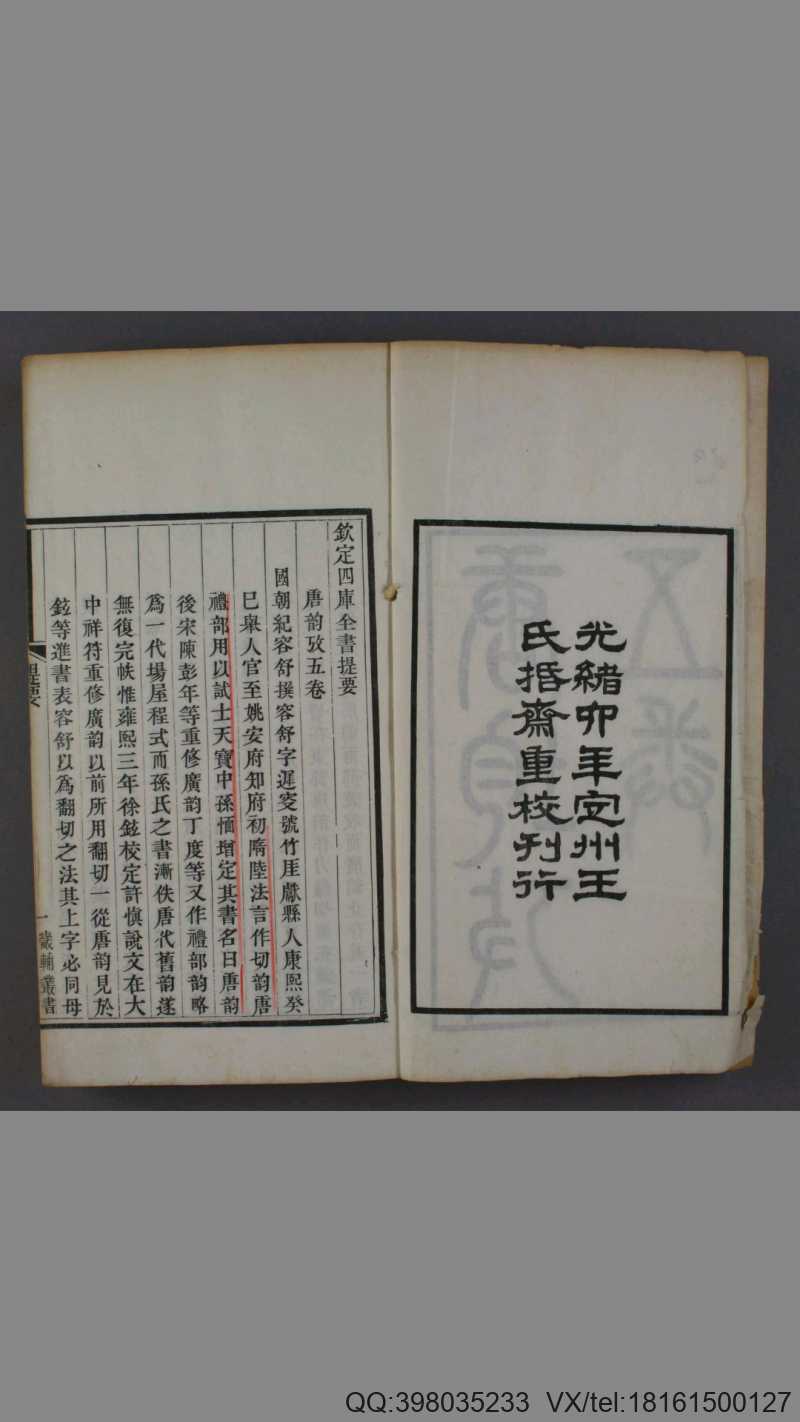 光緒卯年定州王
氏㨉齋重校刊行
欽定四庫全書提要
唐韵攷五卷
國朝紀容舒撰容舒字遲叟號竹厓獻縣人康熙癸
巳舉人官至姚安府知府初隋陸法言作切韵唐
禮部用以試士天寶中孫愐增定其書名曰唐韵
後宋陳彭年等重修廣韵丁度等又作禮部韵略
爲一代場屋程式而孫氏之書漸佚唐代舊韵遂
無復完帙惟雍熙三年徐鉉校定許愼說文在大
中祥符重修廣韵以前所用翻切一從唐韵見於
鉉等進書表容舒以爲翻切之法其上字必同母
提要
一畿輔叢書
QQ:398035233 VX/tel:18161500127